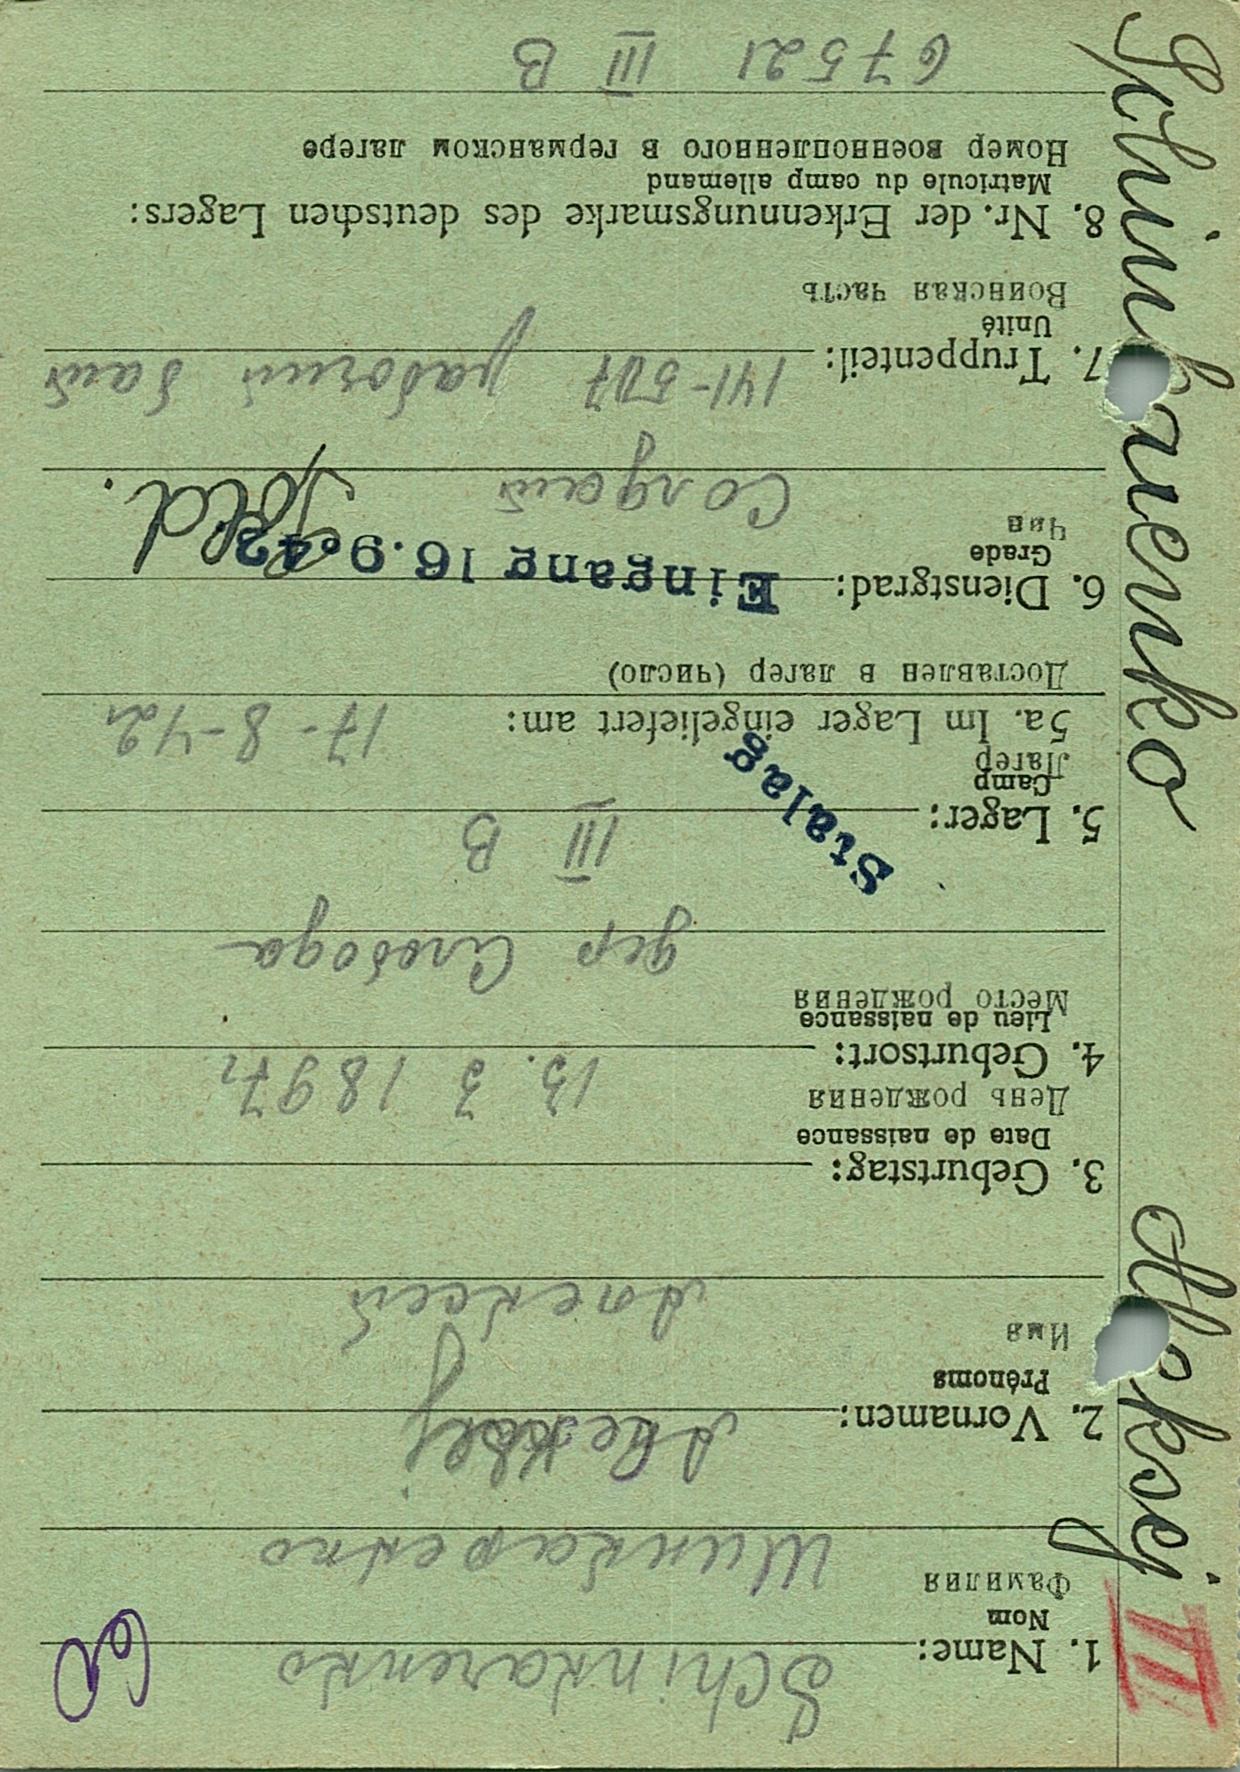 Schinkarenko Aleksej
II
1. Name: Schinkarenko
Nom
Фамилия Шинкаренко
2. Vornamen: Aleksej
Prénoms
Имя Алексей
3. Geburtstag:
Date de naissance
День рождения 13. 3 1897г
4. Geburtsort:
Lieu de naissance
Место рождения дер Слобода
5. Lager: III B
Camp
Лагер
Stalag
5a. Im Lager eingeliefert am: 17-8-42г
Доставлен в лагер (число)
6. Dienstgrad: Eingang 16.9.42 Sold.
Grade
Чин Солдат
7. Truppenteil: 141-507 рабочий бат
Unité
Воинская часть
8. Nr. der Erkennungsmarke des deutschen Lagers:
Matricule du camp allemand
Номер военнопленного в германском лагере
67521 III B